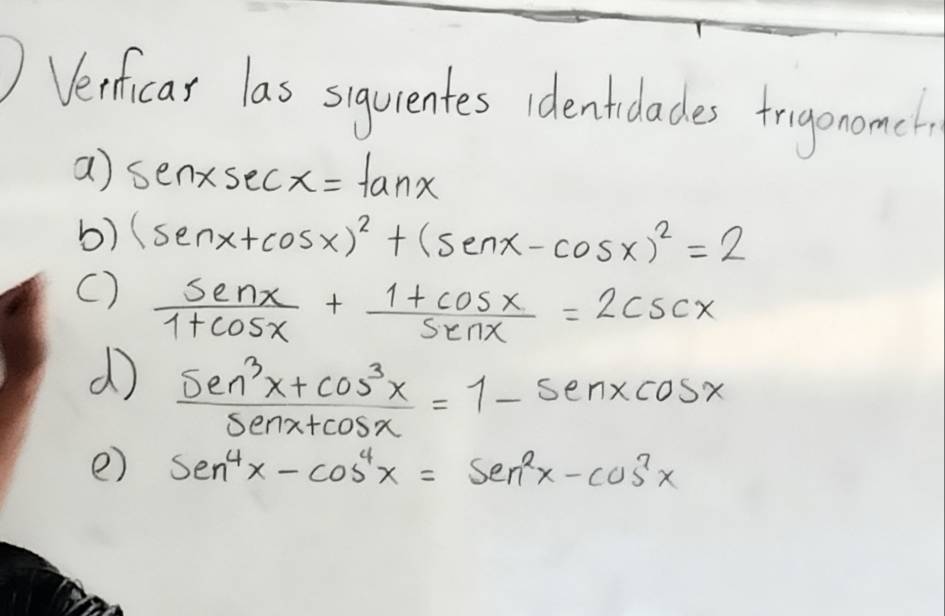 ) Verificar las siguientes identidades trigonometri
a) senxsecx = tanx
b) (senx+cosx)² + (senx-cosx)² = 2
c) senx/1+cosx + 1+cosx/senx = 2cscx
d) sen³x+cos³x/senx+cosx = 1 - senxcosx
e) sen⁴x - cos⁴x = sen²x - cos²x